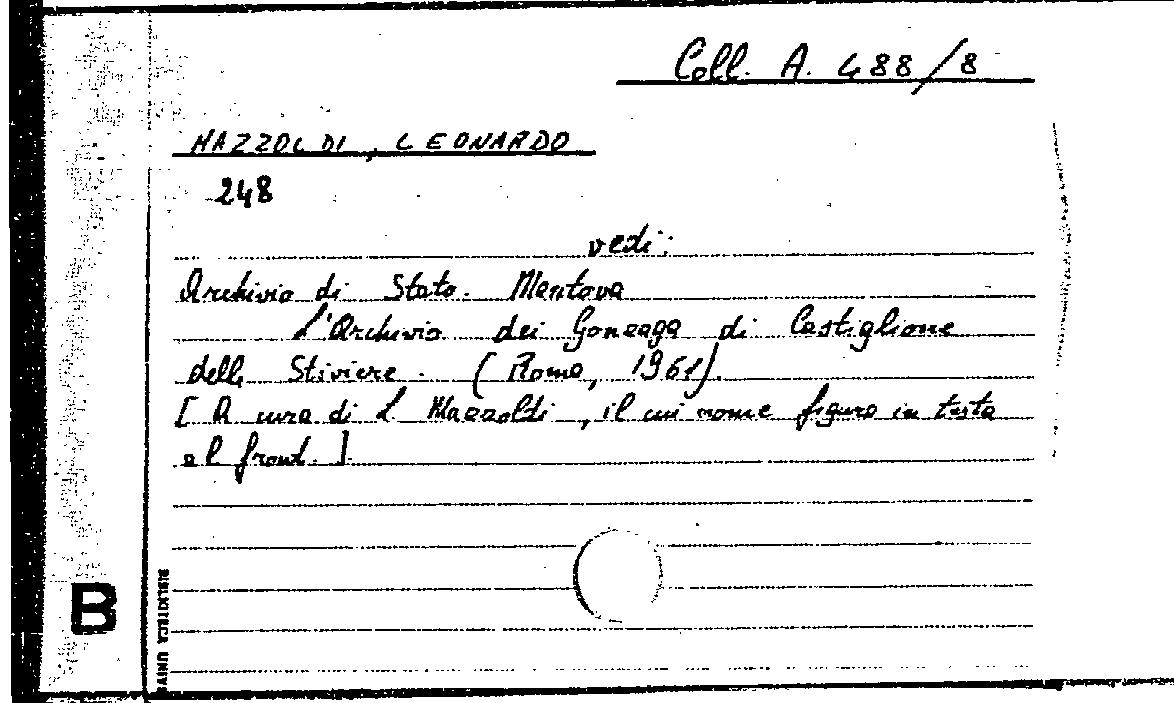 Coll. A. 488/8
MAZZOLDI, LEONARDO
248
vedi:
Archivio di Stato. Mantova
L'Archivio dei Gonzaga di Castiglione
delle Stiviere. (Roma, 1961).
[A cura di L. Mazzoldi, il cui nome figura in testa
al front.].
B
BIBLIOTECA UNIV